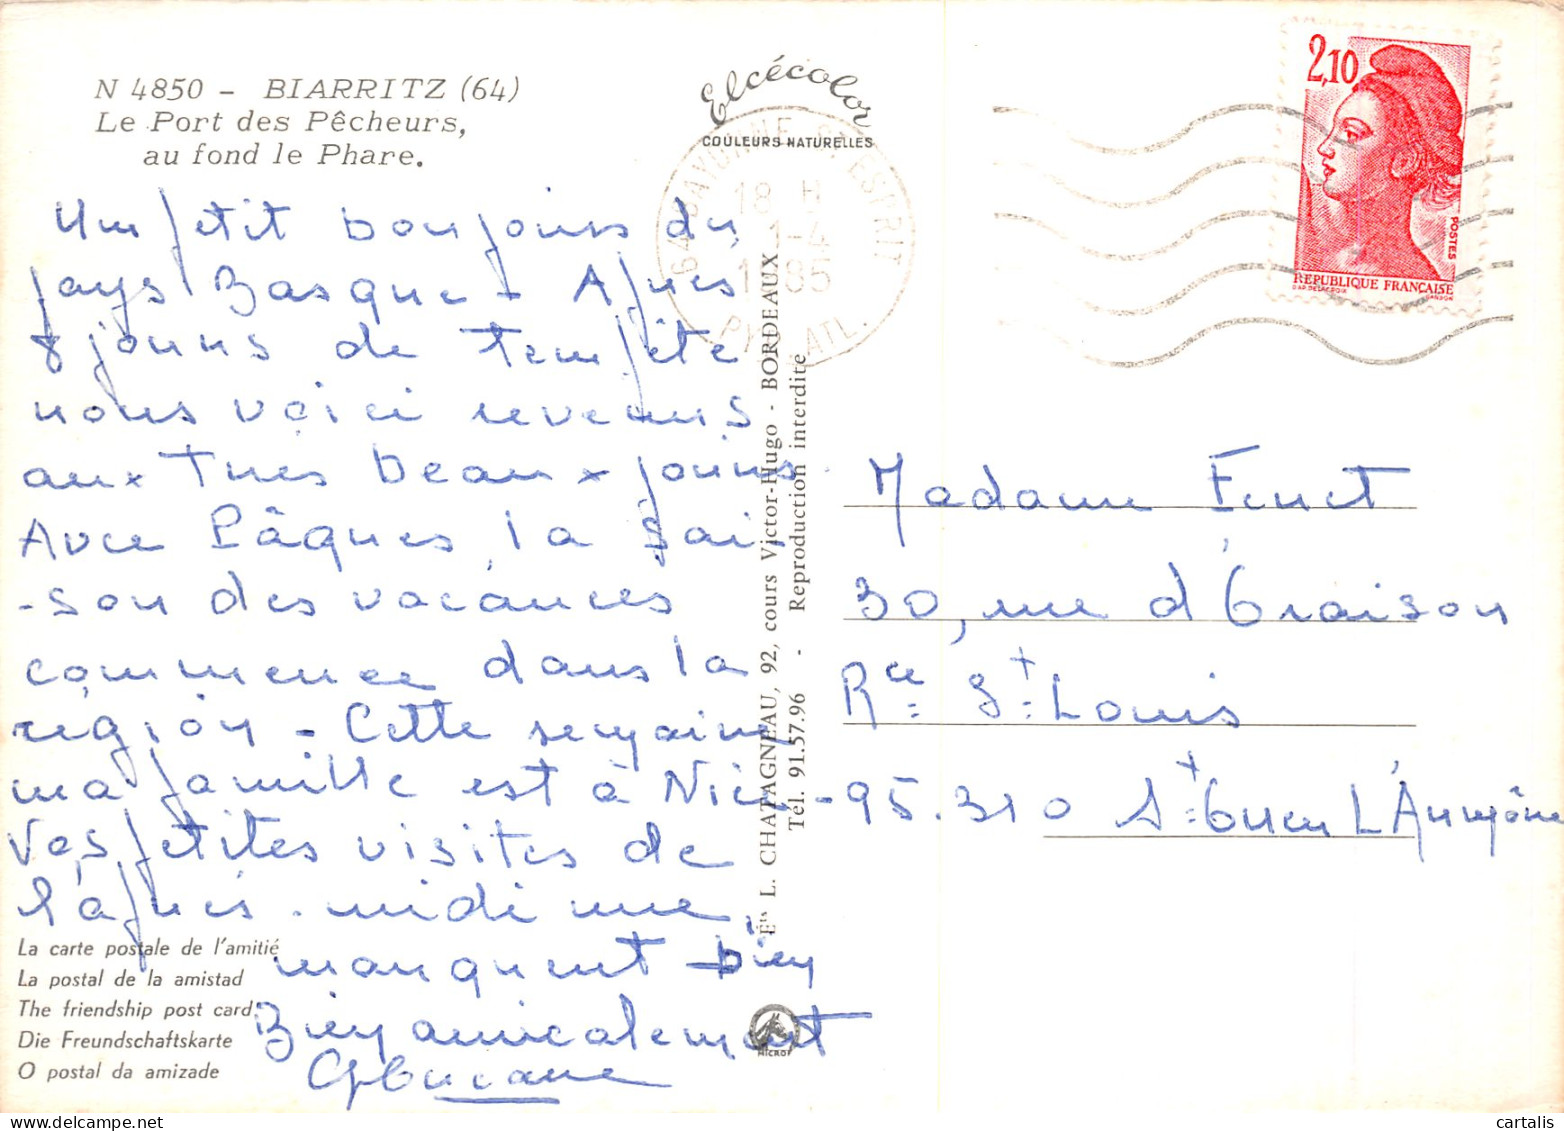 N 4850 - BIARRITZ (64)
Le Port des Pêcheurs,
au fond le Phare.
Elcécolor
COULEURS NATURELLES
18 H
1-4
1985
2,10
POSTES
RÉPUBLIQUE FRANÇAISE
Un petit bonjour du
pays Basque - Après
8 jours de tempête
nous voici revenus
aux très beaux jours
Avec Pâques, la sai-
-son des vacances
commence dans la
région - Cette semaine
ma famille est à Nice -
Vos petites visites de
l'après-midi me
manquent bien
Bien amicalement
Ets L. CHATAGNEAU, 92, cours Victor-Hugo - BORDEAUX
Tél. 91.57.96 - Reproduction interdite
Madame
30, rue d'
Rce St Louis
95.310 St Ouen L'Aumône
La carte postale de l'amitié
La postal de la amistad
The friendship post card
Die Freundschaftskarte
O postal da amizade
cartalis